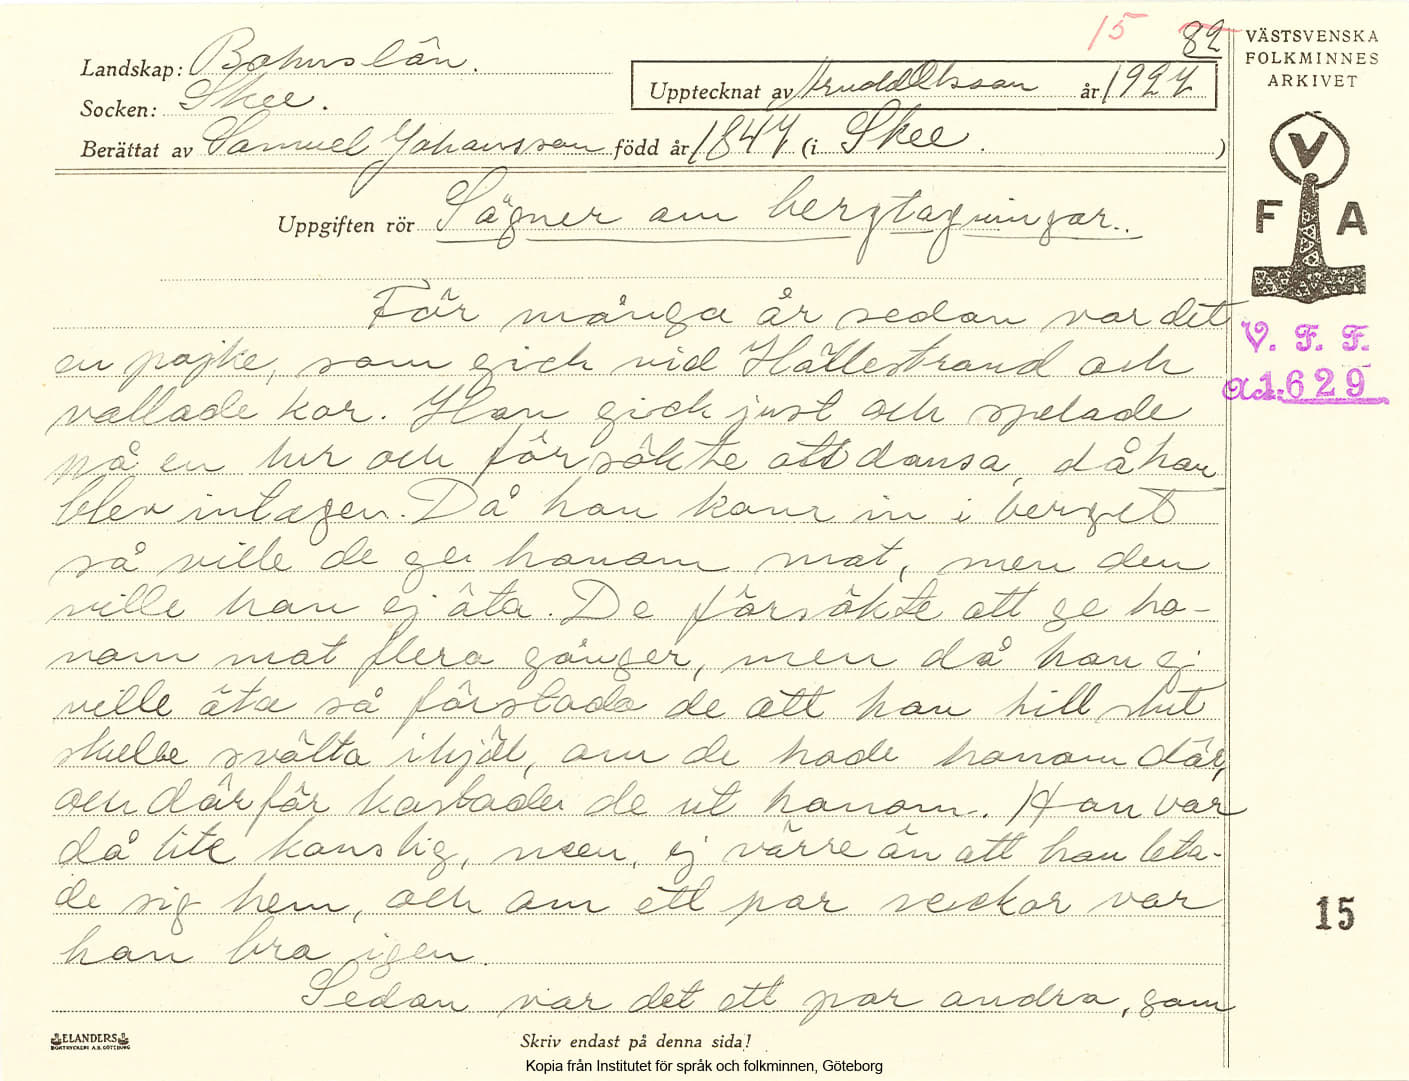 15 82
VÄSTSVENSKA
FOLKMINNES
ARKIVET
Landskap: Bohuslän.
Upptecknat av Arnold Olsson år 1927
Socken: Skee.
Berättat av Samuel Johansson född år 1847 (i Skee. )
V
F A
Uppgiften rör Sägner om bergtagningar.
För många år sedan var det
en pojke, som gick vid Hällestrand och
vallade kor. Han gick just och spelade
på en lur och försökte att dansa, då han
blev intagen. Då han kom in i berget
så ville de ge honom mat, men den
ville han ej äta. De försökte att ge ho-
nom mat flera gånger, men då han ej
ville äta så förstodo de att han till slut
skulle svälta ihjäl, om de hade honom där,
och därför kastade de ut honom. Han var
då lite konstig, men, ej värre än att han leta-
de sig hem, och om ett par veckor var
han bra igen.
Sedan var det ett par andra, som
V. F. F.
Acc. 1629
15
ELANDERS
BOKTRYCKERI A.B. GÖTEBORG
Skriv endast på denna sida!
Kopia från Institutet för språk och folkminnen, Göteborg